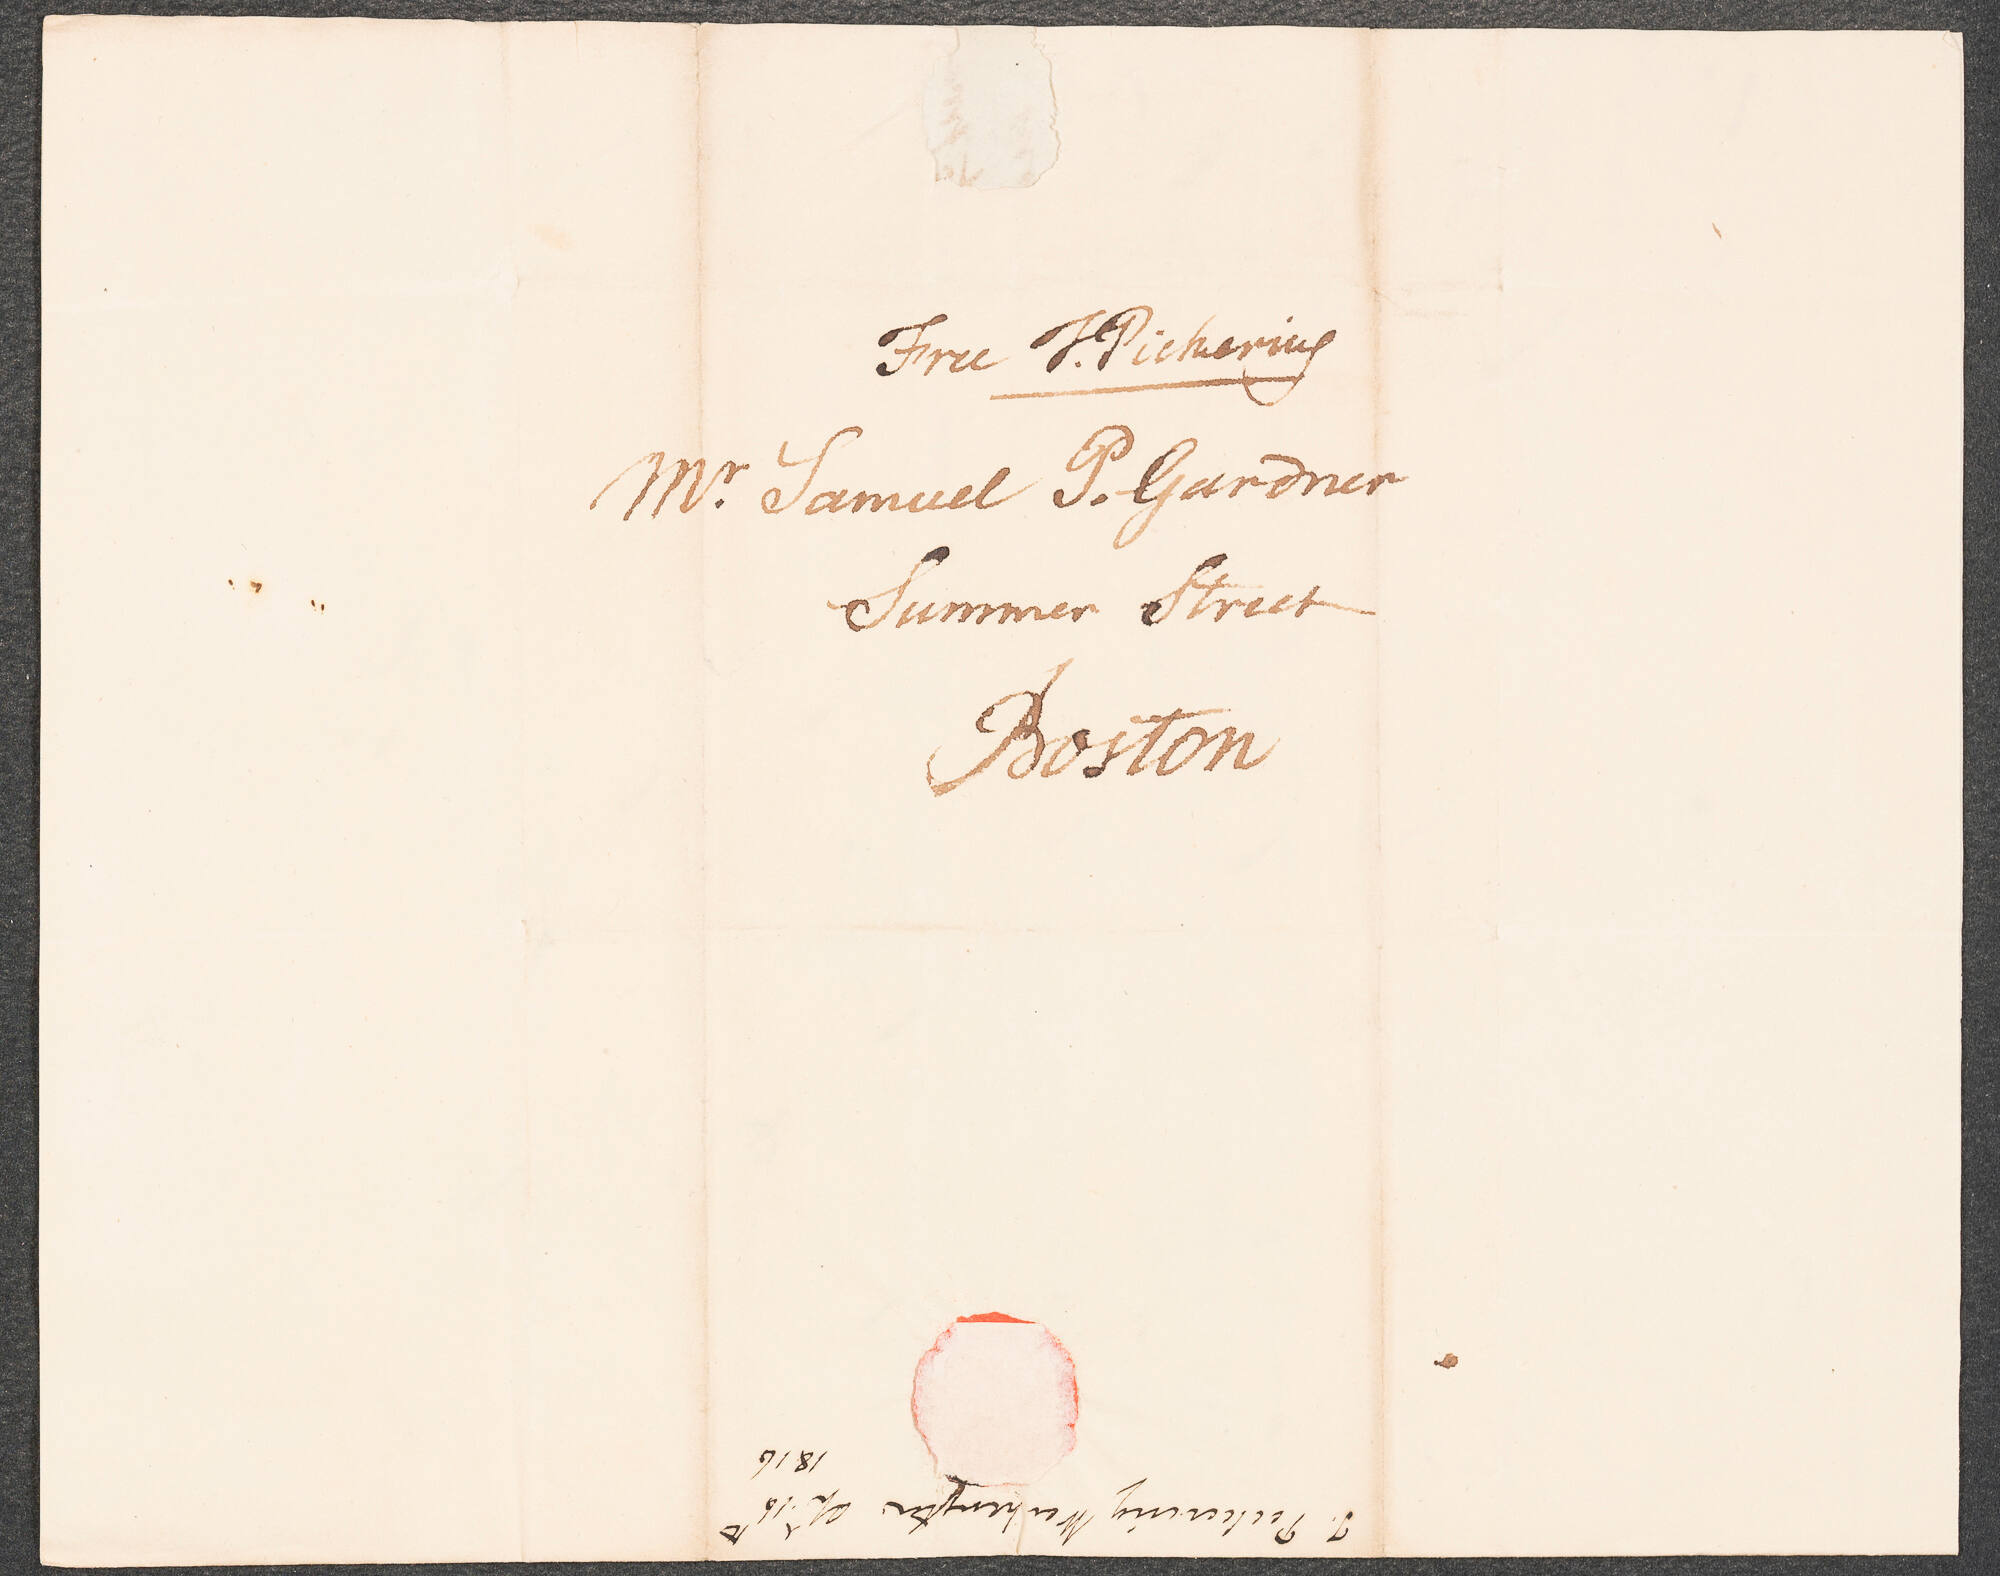 Free T. Pickering
Mr. Samuel P. Gardner
Summer Street
Boston
T. Pickering Washington Ap. 15th
1816